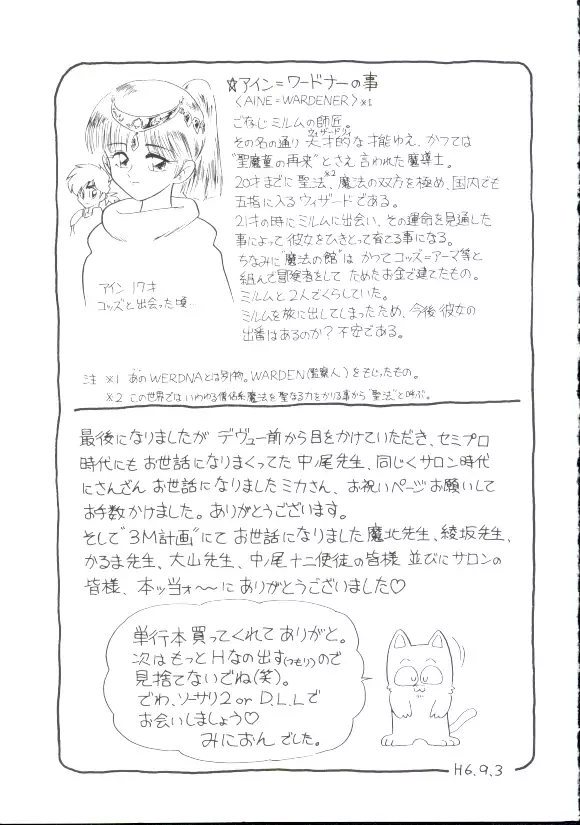 ☆アイン=ワードナーの事
〈AINE=WARDENER〉※1
ごなじミルムの師匠。
その名の通り天才的な才能ゆえ、かつては
"聖魔童の再来"とさえ言われた魔導士。
20才までに聖法※2、魔法の双方を極め、国内でも
五指に入るウィザードである。
21才の時にミルムに出会い、その運命を見通した
事によって彼女をひきとって育てる事になる。
ちなみに"魔法の館"は かつてコッズ=アーマ等と
組んで冒険者をして ためたお金で建てたもの。
ミルムと2人でくらしていた。
ミルムを旅に出してしまったため、今後彼女の
出番はあるのか?不安である。
アイン 17才
コッズと出会った頃…
注 ※1 あのWERDNAとは別物。WARDEN(監察人)をもじったもの。
※2 この世界ではいわゆる僧侶系魔法を聖なる力をかりる事から"聖法"と呼ぶ。
最後になりましたが デヴュー前から目をかけていただき、セミプロ
時代にも お世話になりまくってた 中ノ尾先生、同じくサロン時代
にさんざん お世話になりましたミカさん、お祝いページお願いして
お手数かけました。ありがとうございます。
そして"3M計画"にて お世話になりました 魔北先生、綾坂先生、
かるま先生、大山先生、中ノ尾十二使徒の皆様 並びにサロンの
皆様、本ッ当ォ〜〜に ありがとうございました♡
単行本買ってくれて ありがと。
次はもっとHなの出す(つもり)ので
見捨てないでね(笑)。
でわ、ソーサリ2 or D.L.Lで
お会いしましょう♡
みにおん でした。
H6.9.3